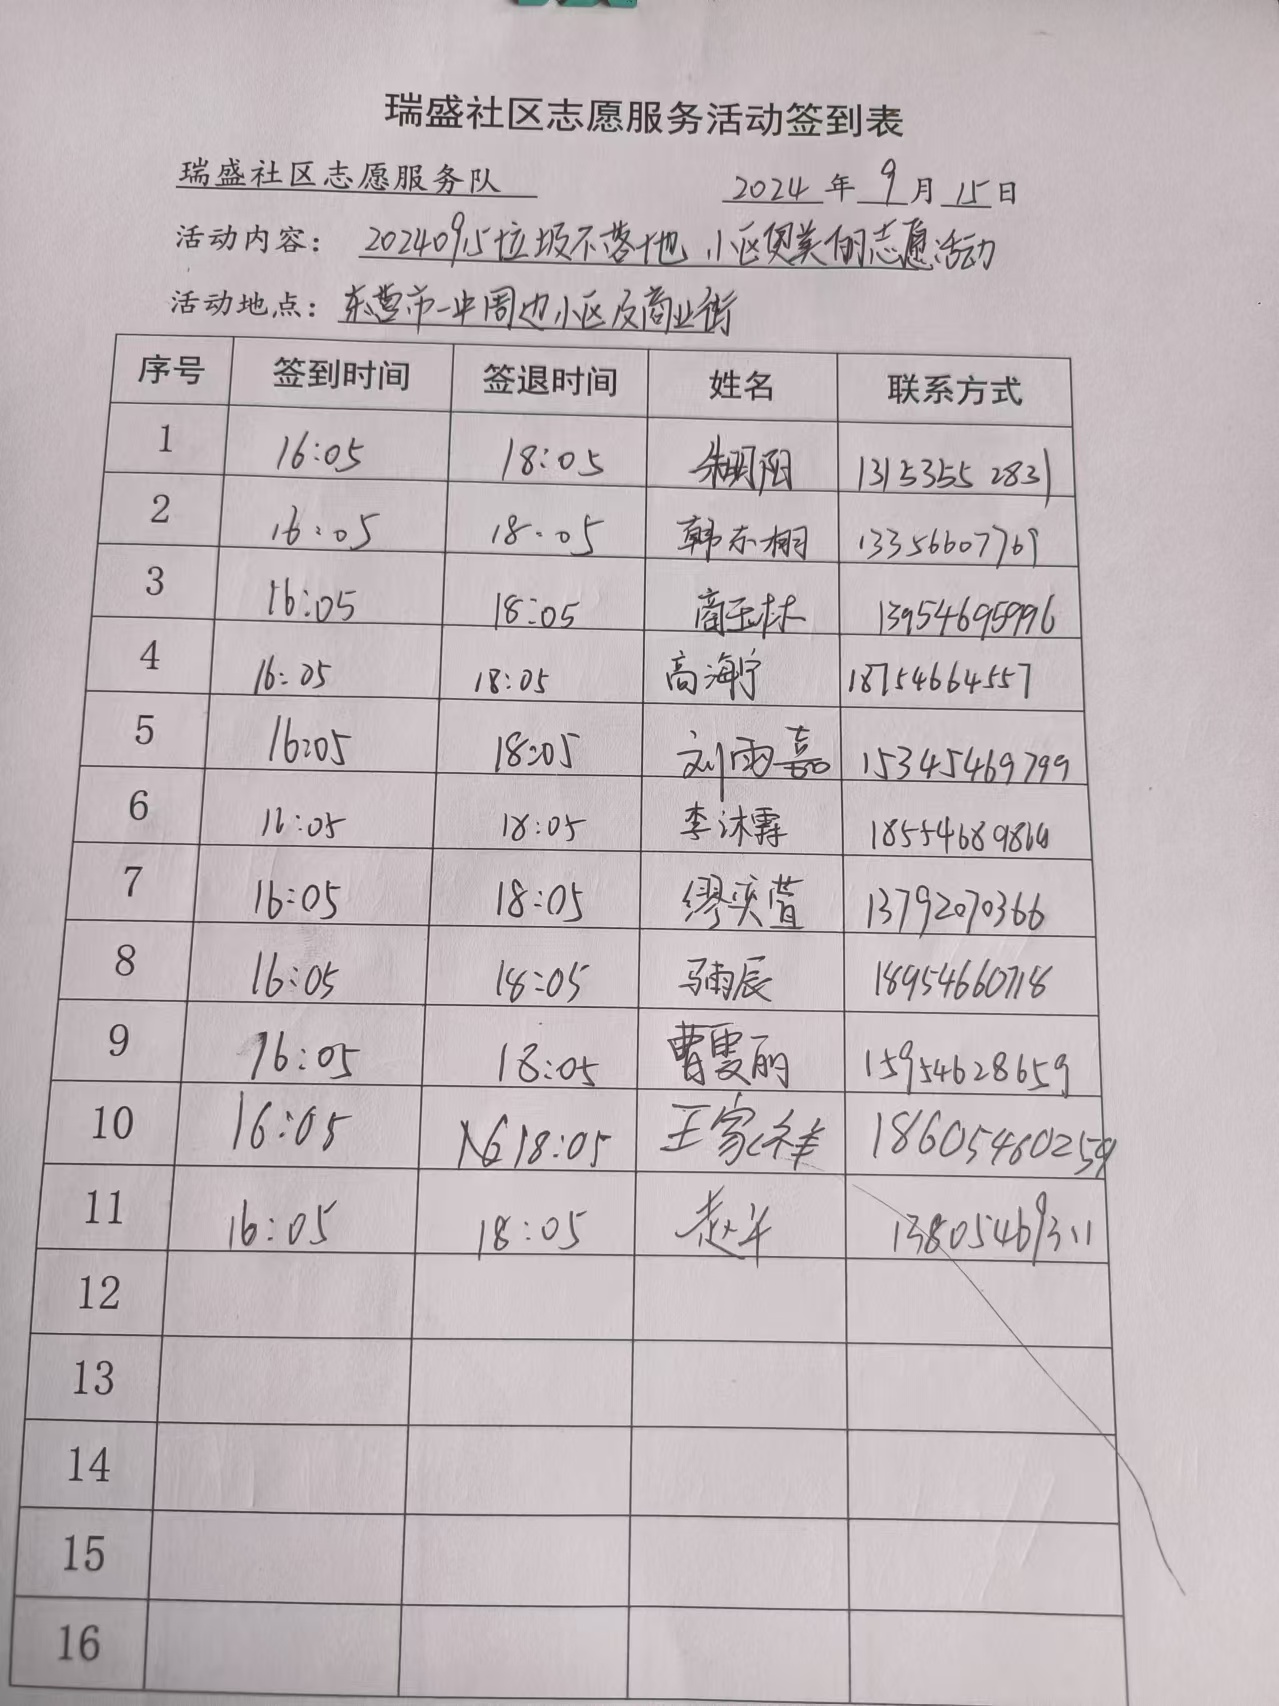 瑞盛社区志愿服务活动签到表
瑞盛社区志愿服务队 2024 年 9 月 15 日
活动内容： 20240915垃圾不落地 小区更美的志愿活动
活动地点： 东营市一中周边小区及商业街
序号 签到时间 签退时间 姓名 联系方式
1 16:05 18:05 朱明阳 13153552831
2 16:05 18:05 韩东栩 13356607769
3 16:05 18:05 商玉林 13954695996
4 16:05 18:05 高海宁 18754664557
5 16:05 18:05 刘雨嘉 15345469799
6 16:05 18:05 李沐霖
7 16:05 18:05 缪奕萱 13792070366
8 16:05 18:05 马雨辰 18954660718
9 16:05 18:05 曹雯丽 15954628659
10 16:05 18:05 王家祥 18605460259
11 16:05 18:05 13805469311
12
13
14
15
16